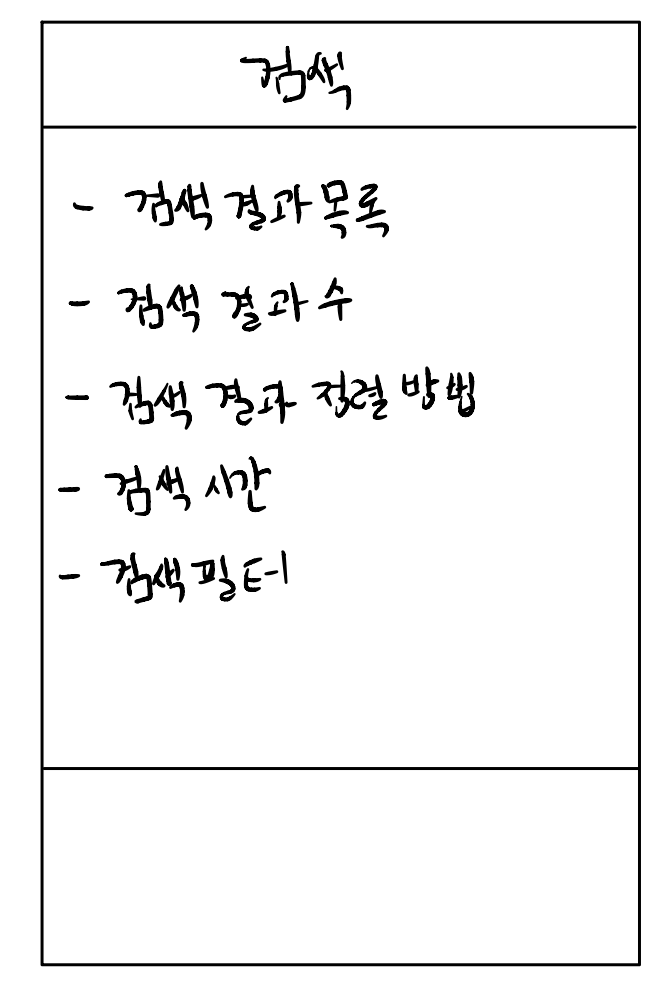 검색
- 검색 결과 목록
- 검색 결과 수
- 검색 결과 정렬 방법
- 검색 시간
- 검색 필터